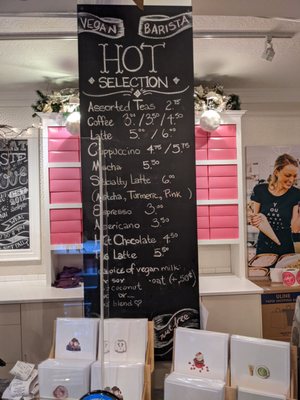 VEGAN BARISTA
HOT
SELECTION
Assorted Teas 2.75
Coffee 3.00/3.50/4.50
Latte 5.00/6.
Cappuccino 4.75/5.75
Mocha 5.50
Specialty Latte 6.00
(Matcha, Turmeric, Pink)
Espresso 3.00
Americano 3.50
Hot Chocolate 4.50
Latte 5.50
choices of vegan milk:
soy
coconut •oat (+.50¢)
or...
blend ♡
nut free
YOU
ARE
ULINE